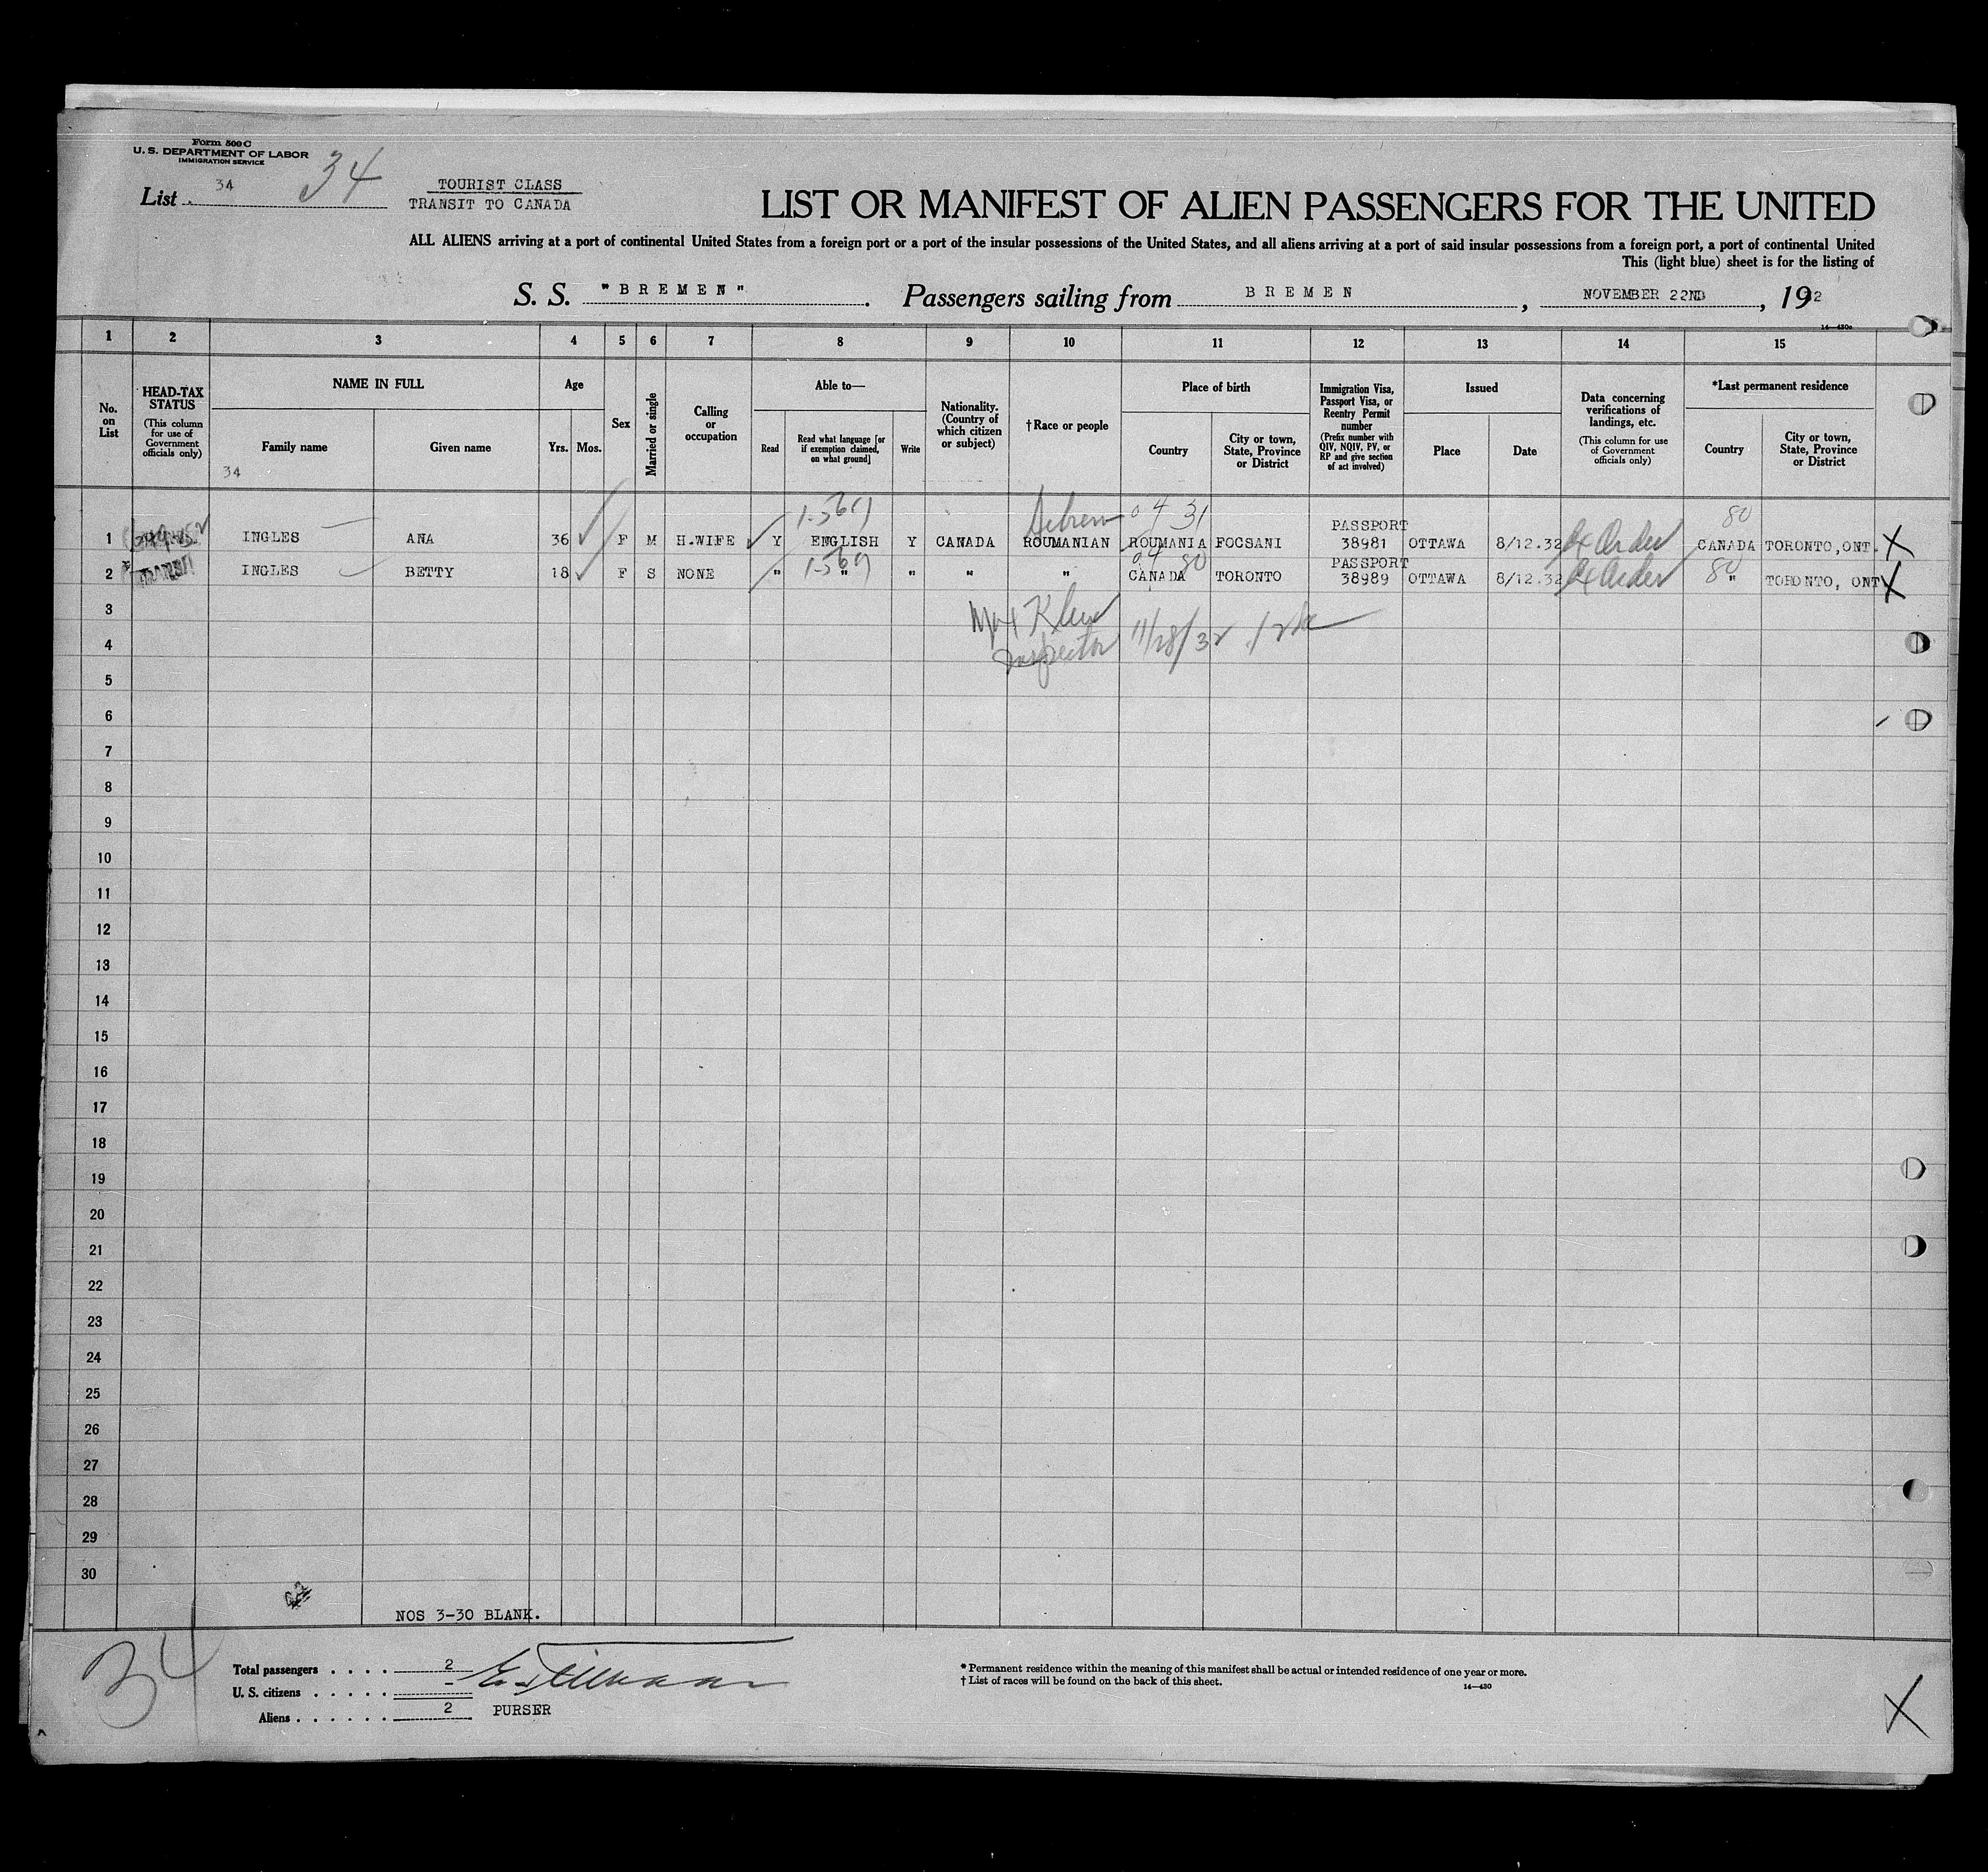 Form 500 C
U. S. DEPARTMENT OF LABOR
IMMIGRATION SERVICE
List 34 34
TOURIST CLASS
TRANSIT TO CANADA
LIST OR MANIFEST OF ALIEN PASSENGERS FOR THE UNITED
ALL ALIENS arriving at a port of continental United States from a foreign port or a port of the insular possessions of the United States, and all aliens arriving at a port of said insular possessions from a foreign port, a port of continental United
This (light blue) sheet is for the listing of
S. S. "BREMEN". Passengers sailing from BREMEN, NOVEMBER 22ND, 192
14—430a
1 2 3 4 5 6 7 8 9 10 11 12 13 14 15
No. on List
HEAD-TAX STATUS
(This column for use of Government officials only)
NAME IN FULL
Family name
Given name
34
Age
Yrs. Mos.
Sex
Married or single
Calling or occupation
Able to—
Read
Read what language [or if exemption claimed, on what ground]
Write
Nationality. (Country of which citizen or subject)
†Race or people
Place of birth
Country
City or town, State, Province or District
Immigration Visa, Passport Visa, or Reentry Permit number
(Prefix number with QIV, NQIV, PV, or RP and give section of act involved)
Issued
Place
Date
Data concerning verifications of landings, etc.
(This column for use of Government officials only)
*Last permanent residence
Country
City or town, State, Province or District
Hebrew 04 31 PASSPORT 80
1 INGLES ANA 36 F M H.WIFE Y ENGLISH Y CANADA ROUMANIAN ROUMANIA FOCSANI 38981 OTTAWA 8/12.32 CANADA TORONTO,ONT. X
04 80 PASSPORT 80
2 INGLES BETTY 18 F S NONE " " " " " CANADA TORONTO 38989 OTTAWA 8/12.32 " TORONTO, ONT X
3
Inspector 11/28/32
4
5
6
7
8
9
10
11
12
13
14
15
16
17
18
19
20
21
22
23
24
25
26
27
28
29
30
NOS 3-30 BLANK.
34
Total passengers . . . . 2
U. S. citizens . . . . . -
Aliens . . . . . . 2 PURSER
* Permanent residence within the meaning of this manifest shall be actual or intended residence of one year or more.
† List of races will be found on the back of this sheet.
14—430
X